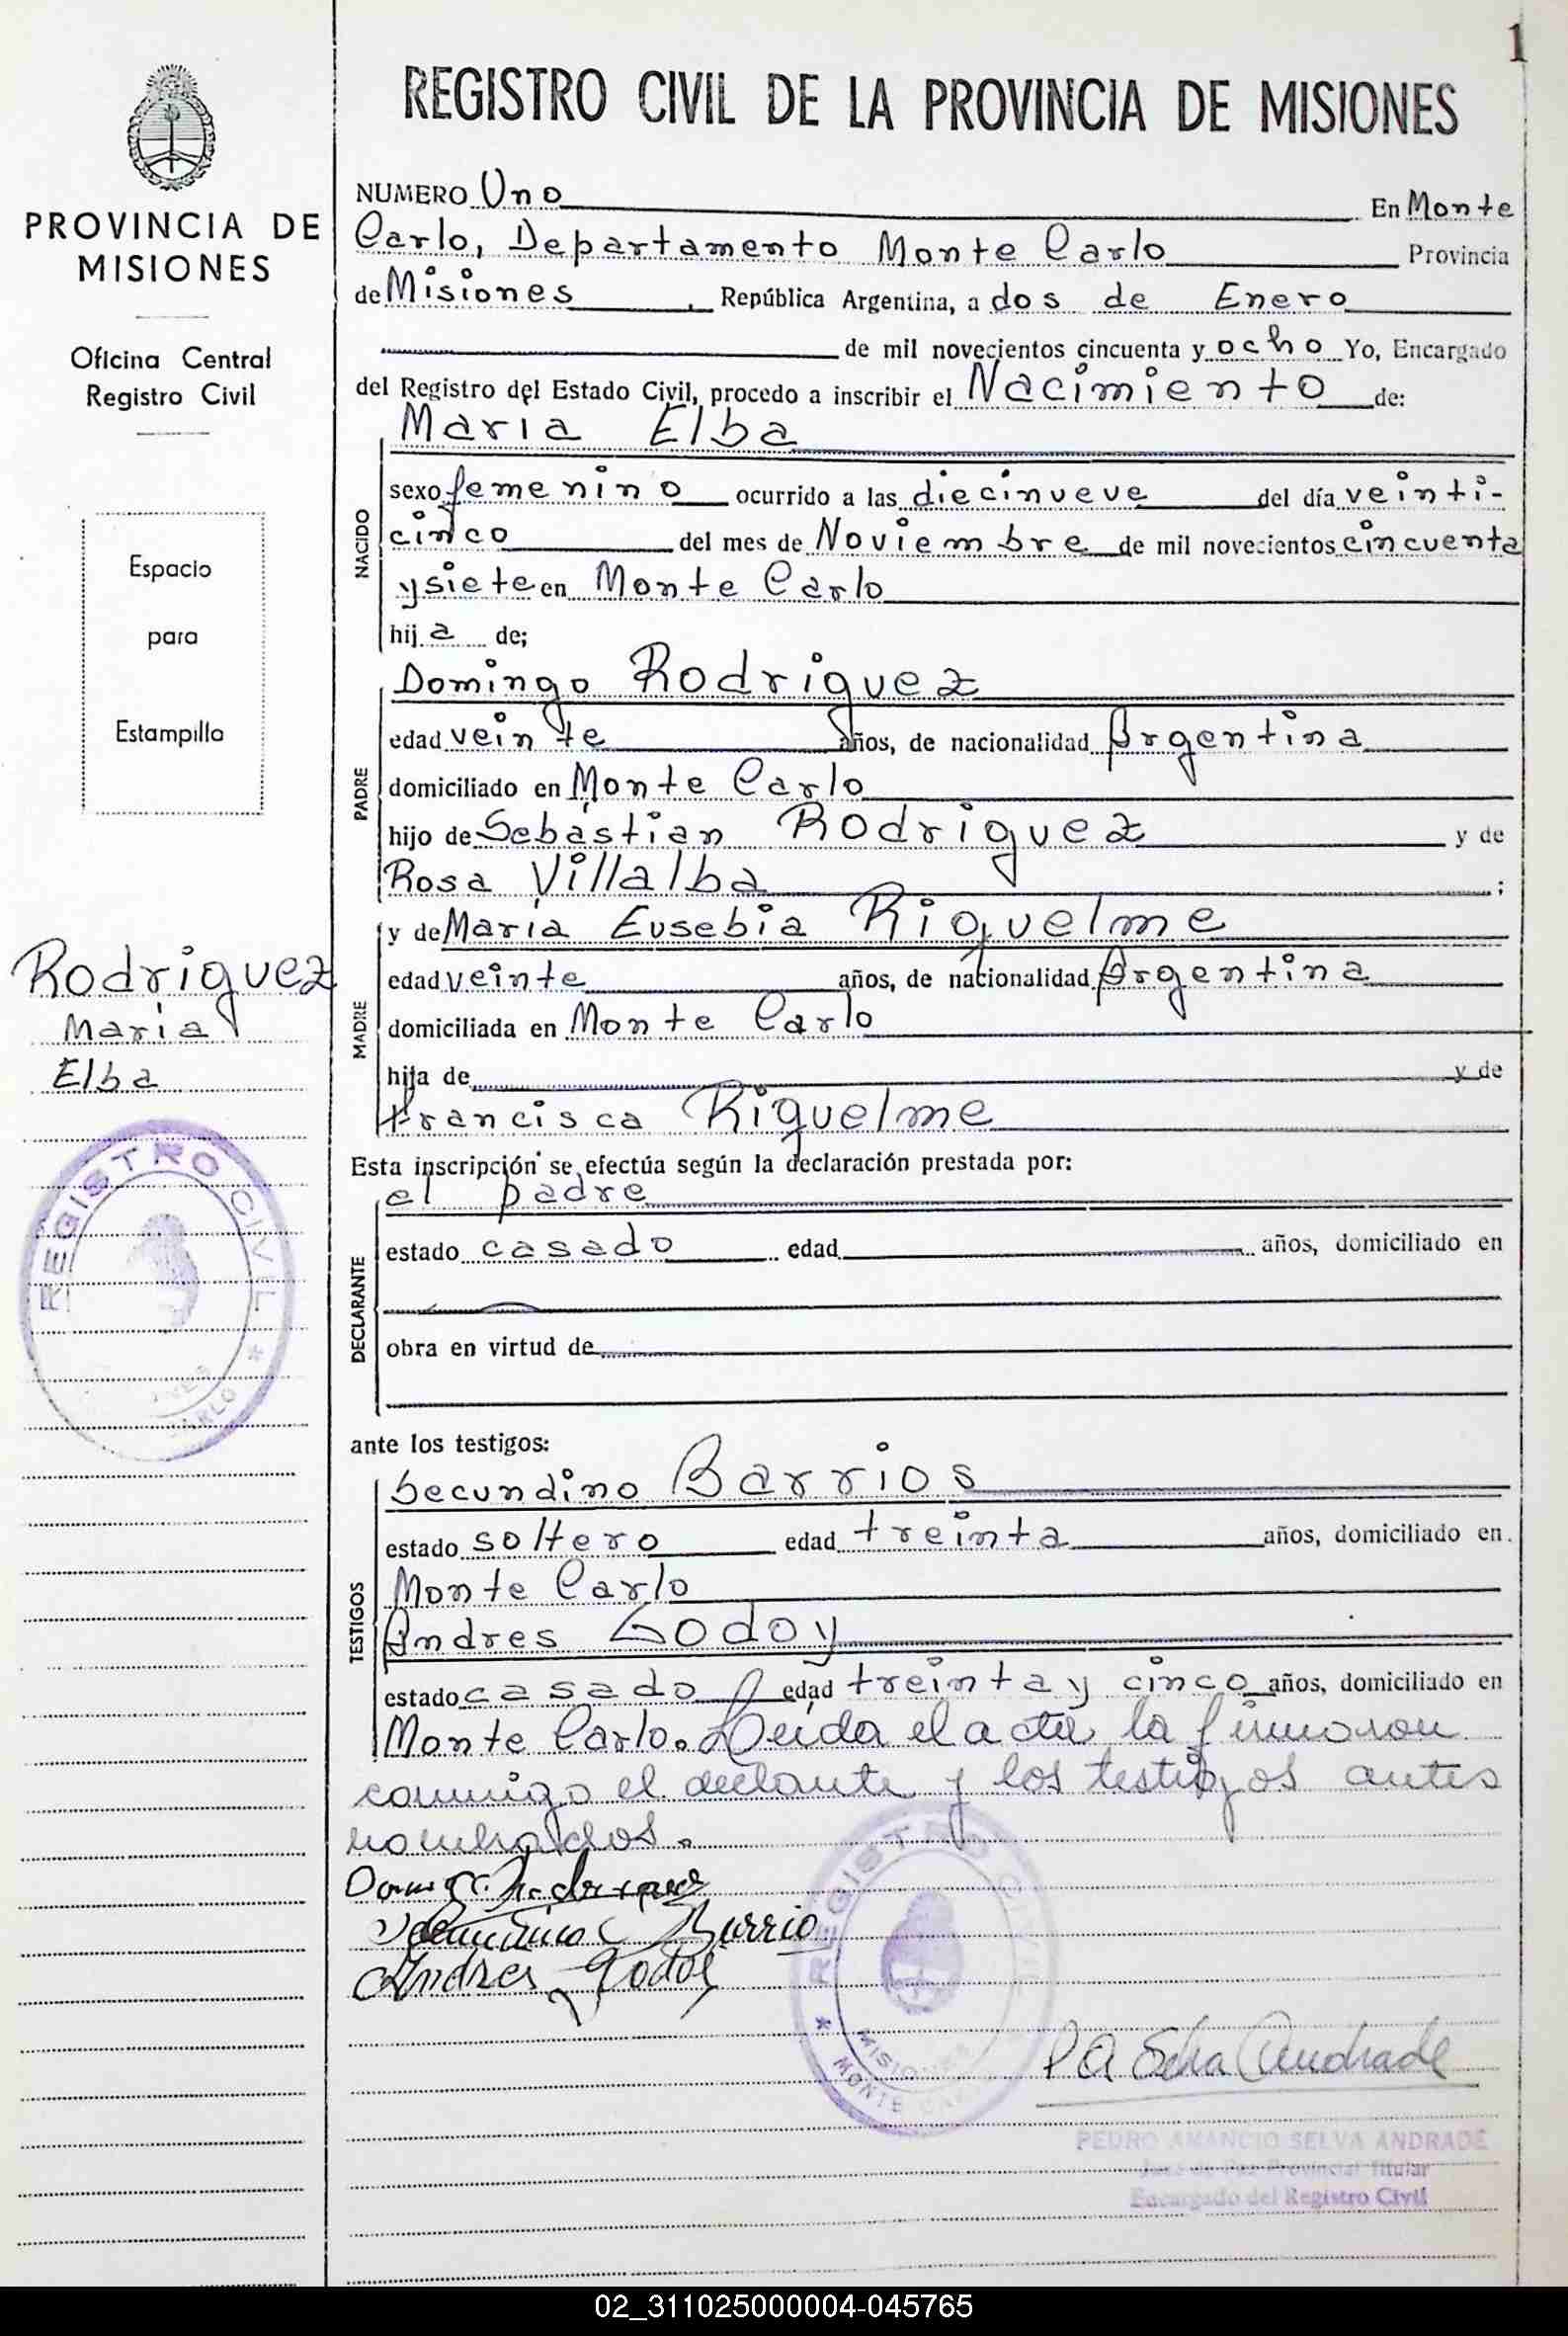 1
REGISTRO CIVIL DE LA PROVINCIA DE MISIONES
PROVINCIA DE
MISIONES
Oficina Central
Registro Civil
Espacio
para
Estampilla
Rodriguez
Maria
Elba
REGISTRO CIVIL
NUMERO Uno En Monte
Carlo, Departamento Monte Carlo Provincia
de Misiones, República Argentina, a dos de Enero
de mil novecientos cincuenta y ocho Yo, Encargado
del Registro del Estado Civil, procedo a inscribir el Nacimiento de:
NACIDO
Maria Elba
sexo femenino ocurrido a las diecinueve del día veinti-
cinco del mes de Noviembre de mil novecientos cincuenta
y siete en Monte Carlo
hija de;
PADRE
Domingo Rodriguez
edad veinte años, de nacionalidad Argentina
domiciliado en Monte Carlo
hijo de Sebastian Rodriguez y de
Rosa Villalba;
MADRE
y de Maria Eusebia Riquelme
edad veinte años, de nacionalidad Argentina
domiciliada en Monte Carlo
hija de y de
Francisca Riquelme
Esta inscripción se efectúa según la declaración prestada por:
DECLARANTE
el padre
estado casado edad años, domiciliado en
obra en virtud de
ante los testigos:
TESTIGOS
Secundino Barrios
estado soltero edad treinta años, domiciliado en
Monte Carlo
Andres Godoy
estado casado edad treinta y cinco años, domiciliado en
Monte Carlo. Leida el acta la firmaron
conmigo el declante y los testigos antes
nombrados.
Andres Godoi
REGISTRO CIVIL
MISIONES
MONTE
P A Selva Andrade
PEDRO AMANCIO SELVA ANDRADE
Juez de Paz Provincial Titular
Encargado del Registro Civil
02_311025000004-045765